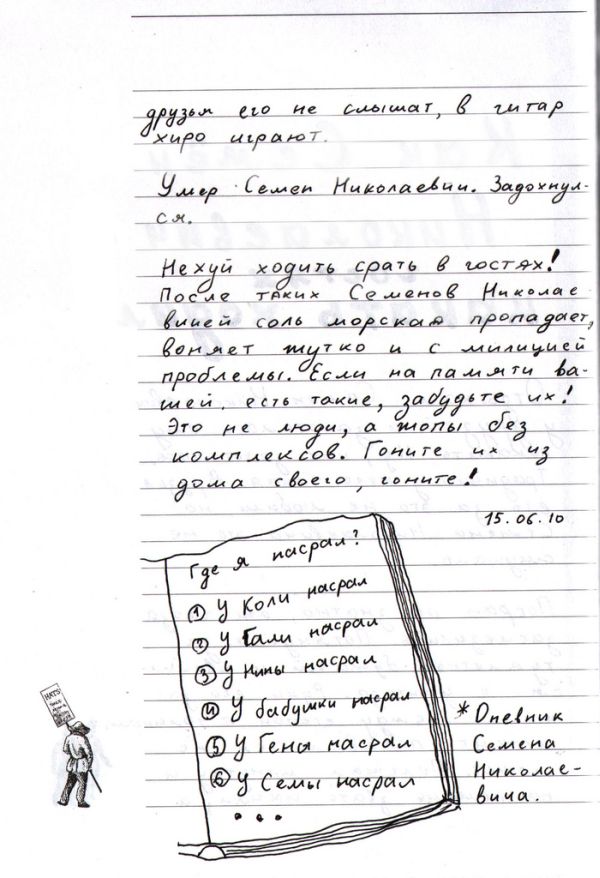 друзья его не слышат, в гитар
хиро играют.
Умер Семен Николаевич. Задохнул-
ся.
Нехуй ходить срать в гостях!
После таких Семенов Николае
вичей соль морская пропадает,
воняет жутко и с милицией
проблемы. Если на памяти ва-
шей есть такие, забудьте их!
Это не люди, а жопы без
комплексов. Гоните их из
дома своего, гоните!
15.06.10
Где я насрал?
1 У Коли насрал
2 У Гали насрал
3 У Нины насрал
4 У бабушки насрал
5 У Гены насрал
6 У Семы насрал
...
* Дневник
Семена
Николае-
вича.
HATS